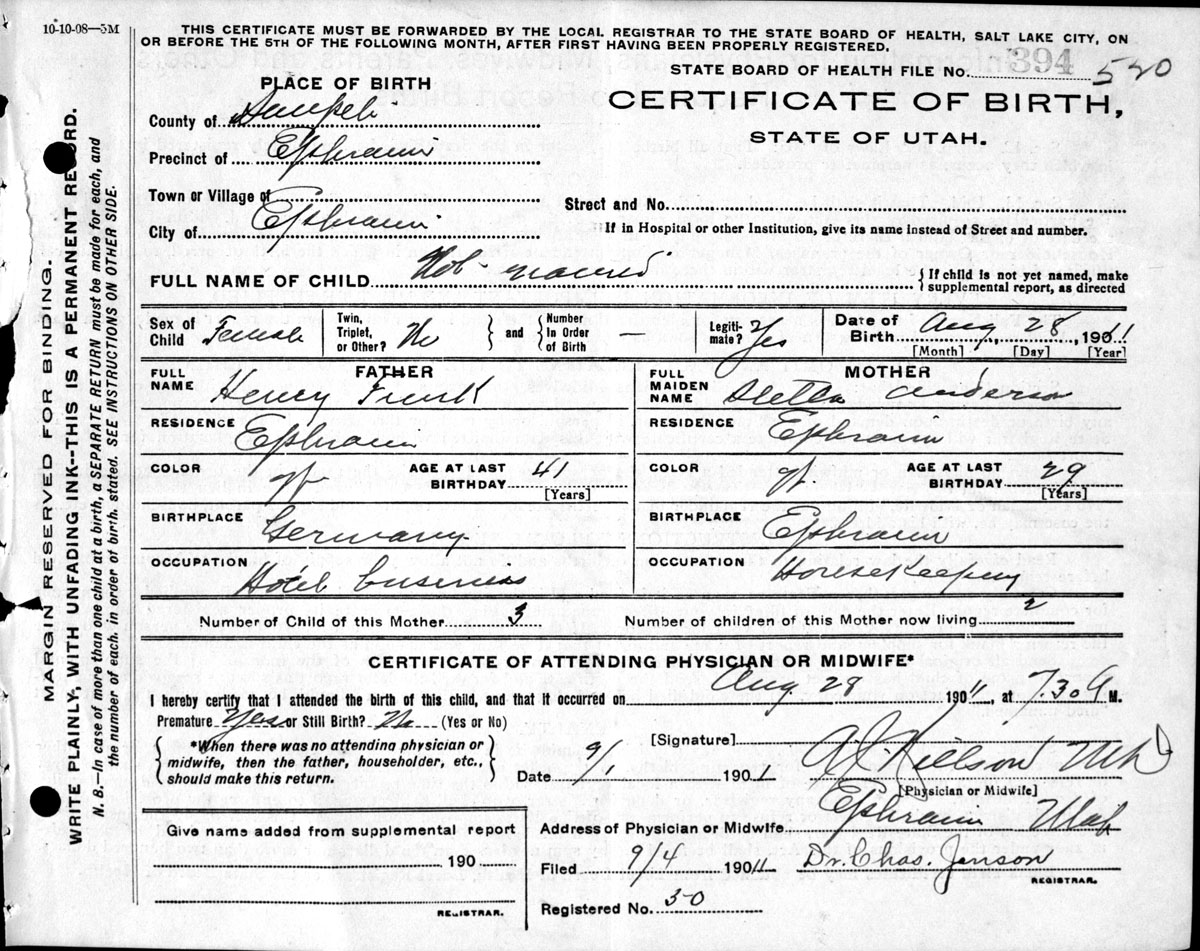 10-10-08—5M
THIS CERTIFICATE MUST BE FORWARDED BY THE LOCAL REGISTRAR TO THE STATE BOARD OF HEALTH, SALT LAKE CITY, ON
OR BEFORE THE 5TH OF THE FOLLOWING MONTH, AFTER FIRST HAVING BEEN PROPERLY REGISTERED.
MARGIN RESERVED FOR BINDING.
WRITE PLAINLY, WITH UNFADING INK--THIS IS A PERMANENT RECORD.
N. B.—In case of more than one child at a birth, a SEPARATE RETURN must be made for each, and
the number of each, in order of birth, stated. SEE INSTRUCTIONS ON OTHER SIDE.
PLACE OF BIRTH
County of Sanpete
Precinct of Ephraim
Town or Village of
City of Ephraim
STATE BOARD OF HEALTH FILE No. 394 520
CERTIFICATE OF BIRTH,
STATE OF UTAH.
Street and No.
If in Hospital or other Institution, give its name instead of Street and number.
FULL NAME OF CHILD Not named { If child is not yet named, make
supplemental report, as directed
Sex of Child Female
Twin, Triplet, or Other? No } and { Number In Order of Birth —
Legiti-mate? Yes
Date of Birth Aug 28, 1911
[Month] [Day] [Year]
FATHER
FULL NAME Henry
RESIDENCE Ephraim
COLOR
AGE AT LAST BIRTHDAY 41
[Years]
BIRTHPLACE Germany
OCCUPATION Hotel business
MOTHER
FULL MAIDEN NAME Anderson
RESIDENCE Ephraim
COLOR
AGE AT LAST BIRTHDAY 29
[Years]
BIRTHPLACE Ephraim
OCCUPATION Housekeeping
Number of Child of this Mother 3
Number of children of this Mother now living 2
CERTIFICATE OF ATTENDING PHYSICIAN OR MIDWIFE*
I hereby certify that I attended the birth of this child, and that it occurred on Aug 28 1911, at 7.30 A M.
Premature Yes or Still Birth? No (Yes or No)
{ *When there was no attending physician or
midwife, then the father, householder, etc.,
should make this return. }
[Signature]
Date 9/1 1901
Nielson
[Physician or Midwife]
Address of Physician or Midwife Ephraim Utah
Give name added from supplemental report
190
REGISTRAR.
Filed 9/4 1911 Dr. Chas. Jenson
REGISTRAR.
Registered No. 30